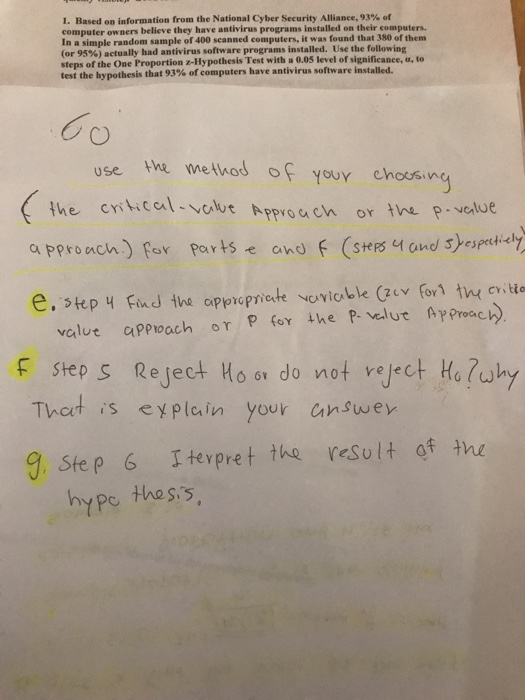 1. Based on information from the National Cyber Security Alliance, 93% of
computer owners believe they have antivirus programs installed on their computers.
In a simple random sample of 400 scanned computers, it was found that 380 of them
(or 95%) actually had antivirus software programs installed. Use the following
steps of the One Proportion z-Hypothesis Test with a 0.05 level of significance, α, to
test the hypothesis that 93% of computers have antivirus software installed.
use the method of your choosing
( the critical-value Approach or the p-value
approach.) for parts e and f (steps 4 and 5) respectively
e. Step 4 Find the appropriate variable (zcv for the critica
value approach or P for the P-value Approach).
F Step 5 Reject Ho or do not reject Ho? why
That is explain your answer
g. Step 6 Iterpret the result of the
hypothesis.